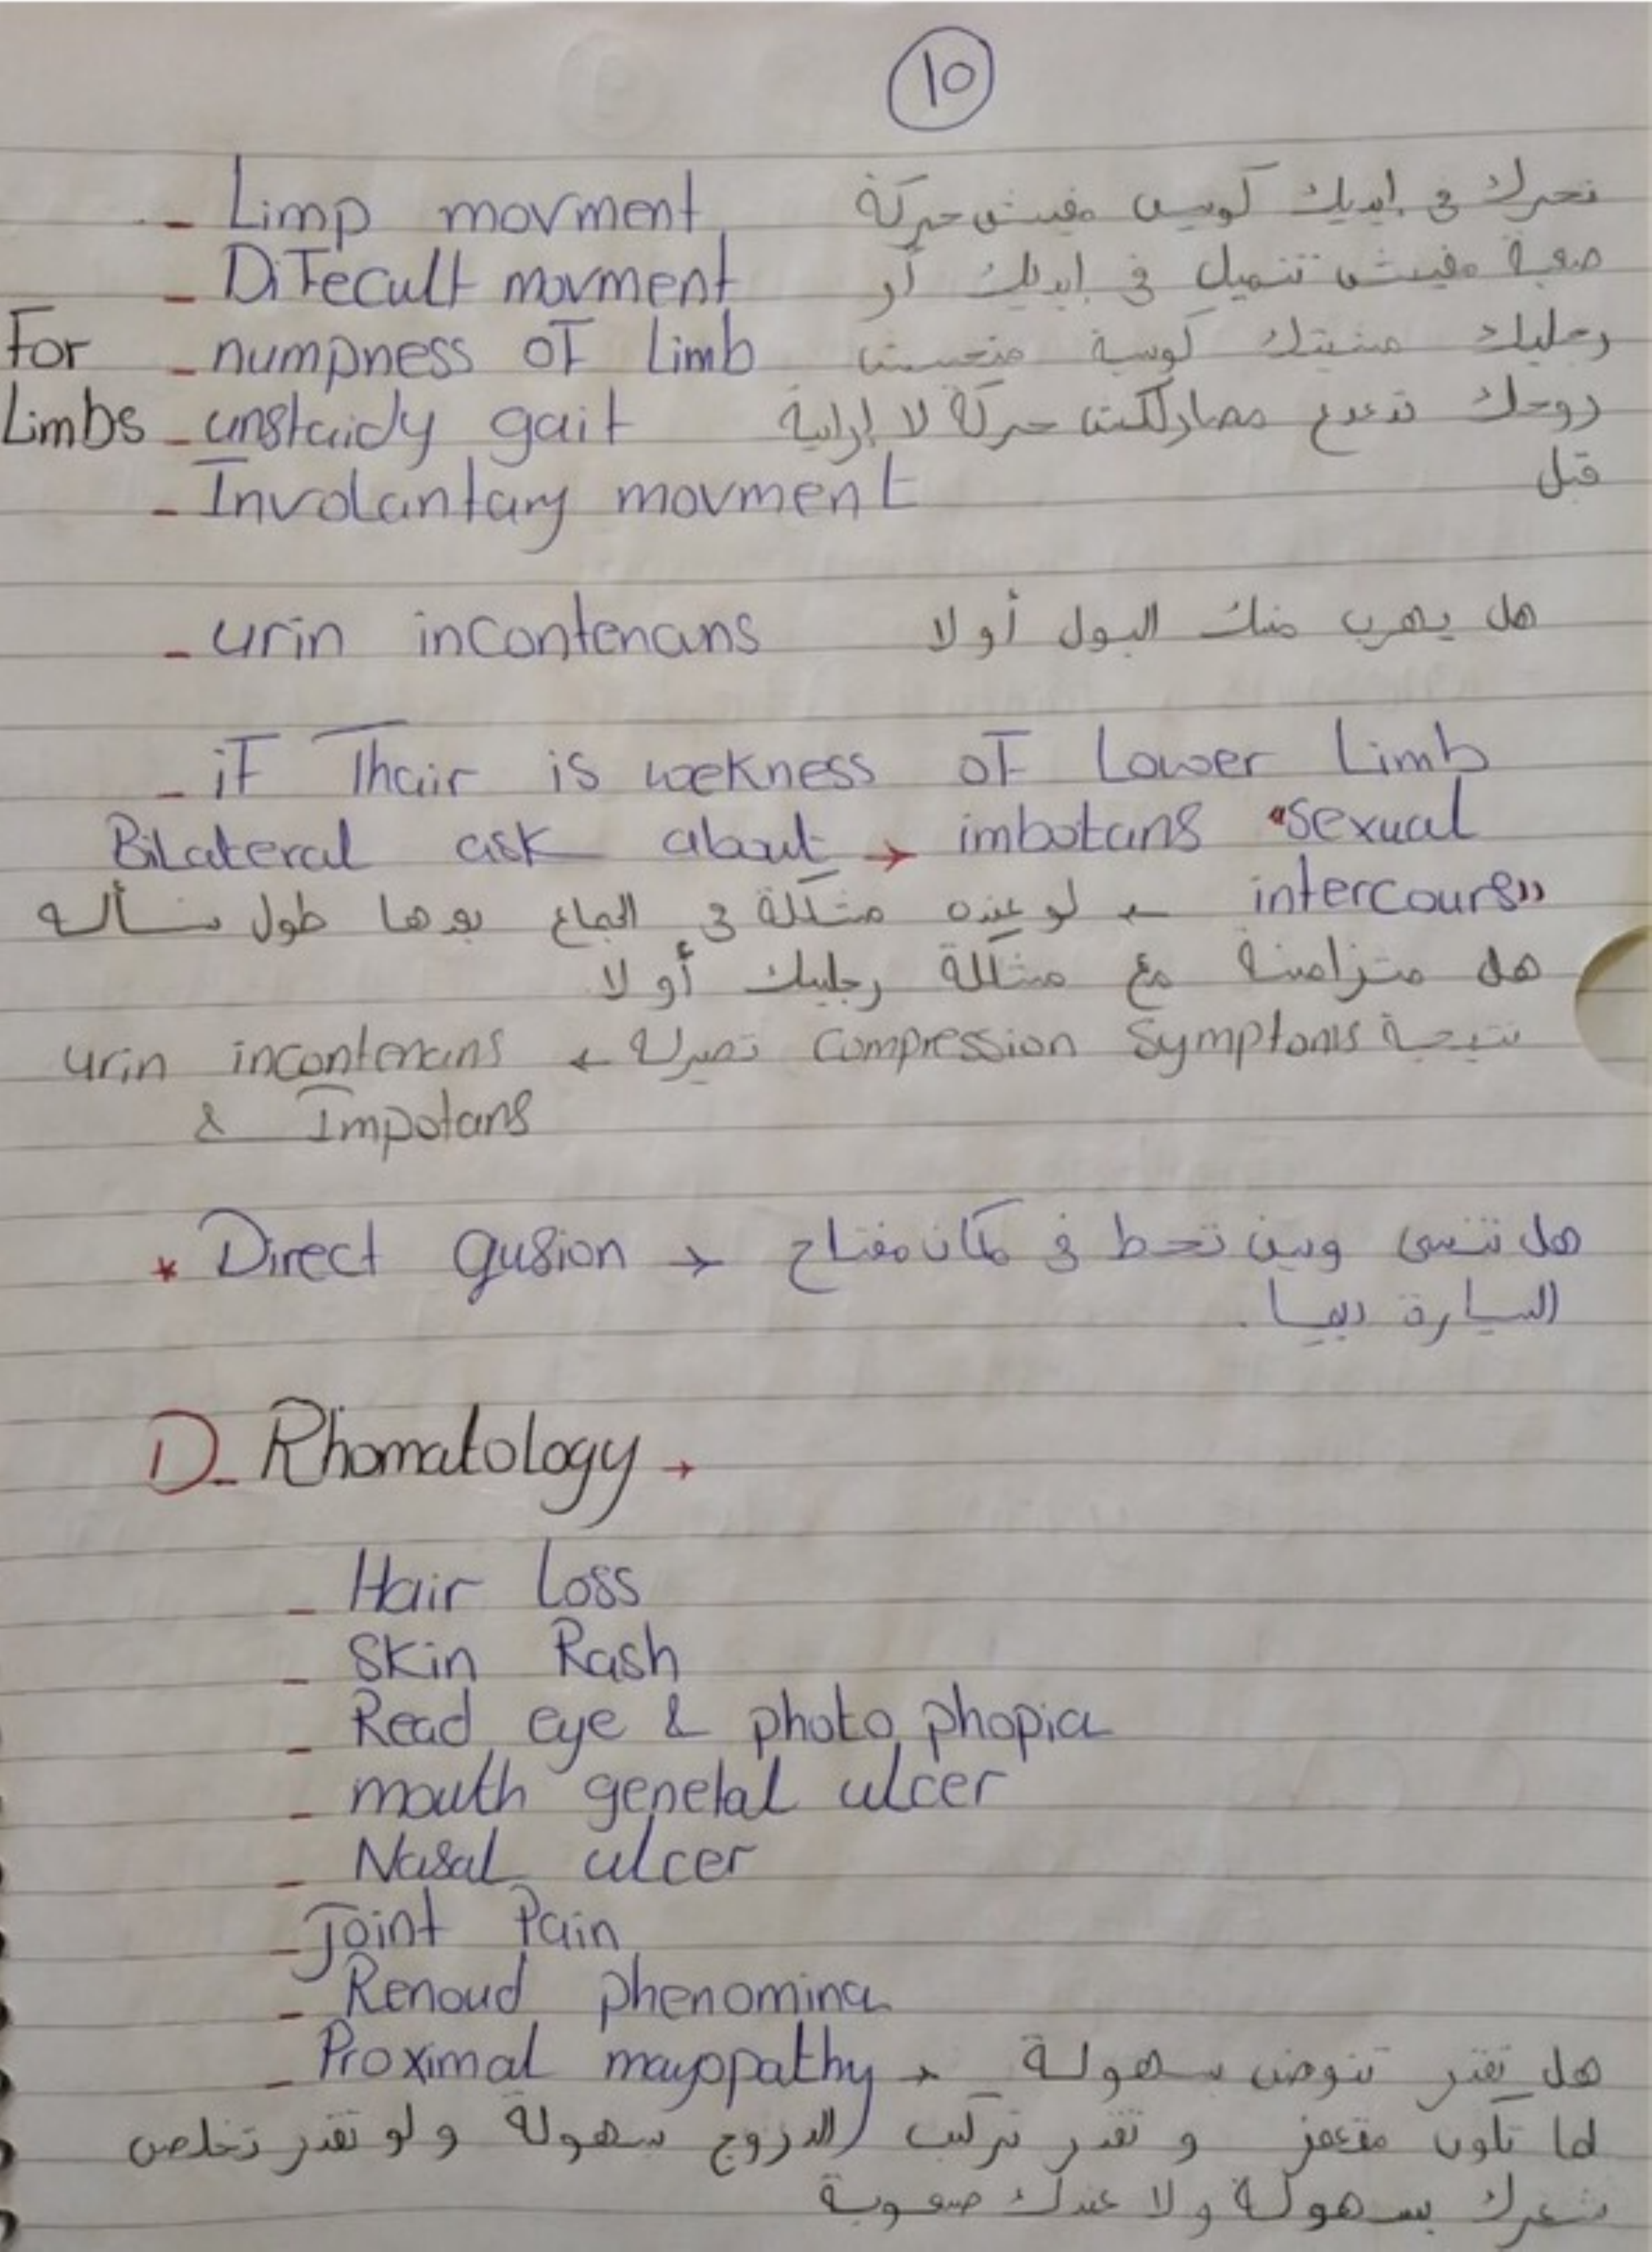 10
- Limp movment تحرك في ايديك كويس مفيش حركة
- DiFecult movment صعبة مفيش تنميل في ايديك أو
For - numpness oF Limb رجليك مشيتك كويسة متحسش
Limbs - unstaidy gait روحك تدعدع مصارلكش حركة لا إرادية
- Involantary movment قبل
- urin incontenans هل يهرب منك البول أولا
- iF Thair is wekness oF Lower Limb
Bilateral ask about → imbotans "sexual
intercours" ← لو عنده مشكلة في الجماع بعدها طول نسأله
هل متزامنة مع مشكلة رجليك أولا
نتيجة Compression Symptoms تصيرله ← urin incontenans
& Impotans
* Direct qusion → هل تنسى وين تحط في مكان مفتاح
السيارة ديما .
D- Rhomatology →
- Hair Loss
- Skin Rash
- Read eye & photo phopia
- mouth genetal ulcer
- Nasal ulcer
- Joint Pain
- Renoud phenomina
- Proximal mayopathy → هل تقدر تنوض بسهولة
لما تكون مقعمز و تقدر تركب الدروج بسهولة و لو تقدر تخلص
شعرك بسهولة ولا عندك صعوبة